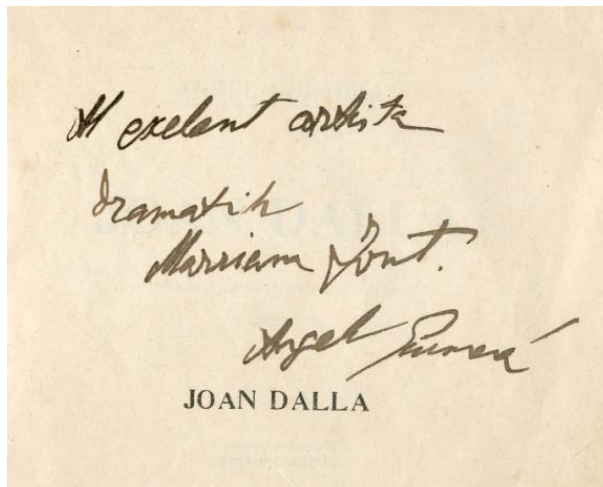 Al exelent artista
dramatih
Marriam Font.
Angel Guimerá
JOAN DALLA